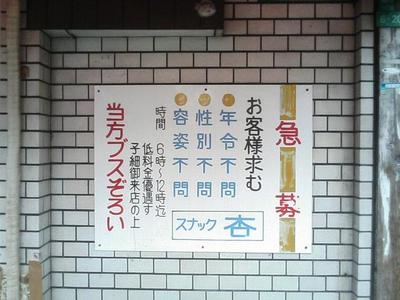 急募
お客様求む
年令不問
性別不問
容姿不問
スナック 杏
時間 6時～12時迄
低料金優遇す
子細御来店の上
当方ブスぞろい